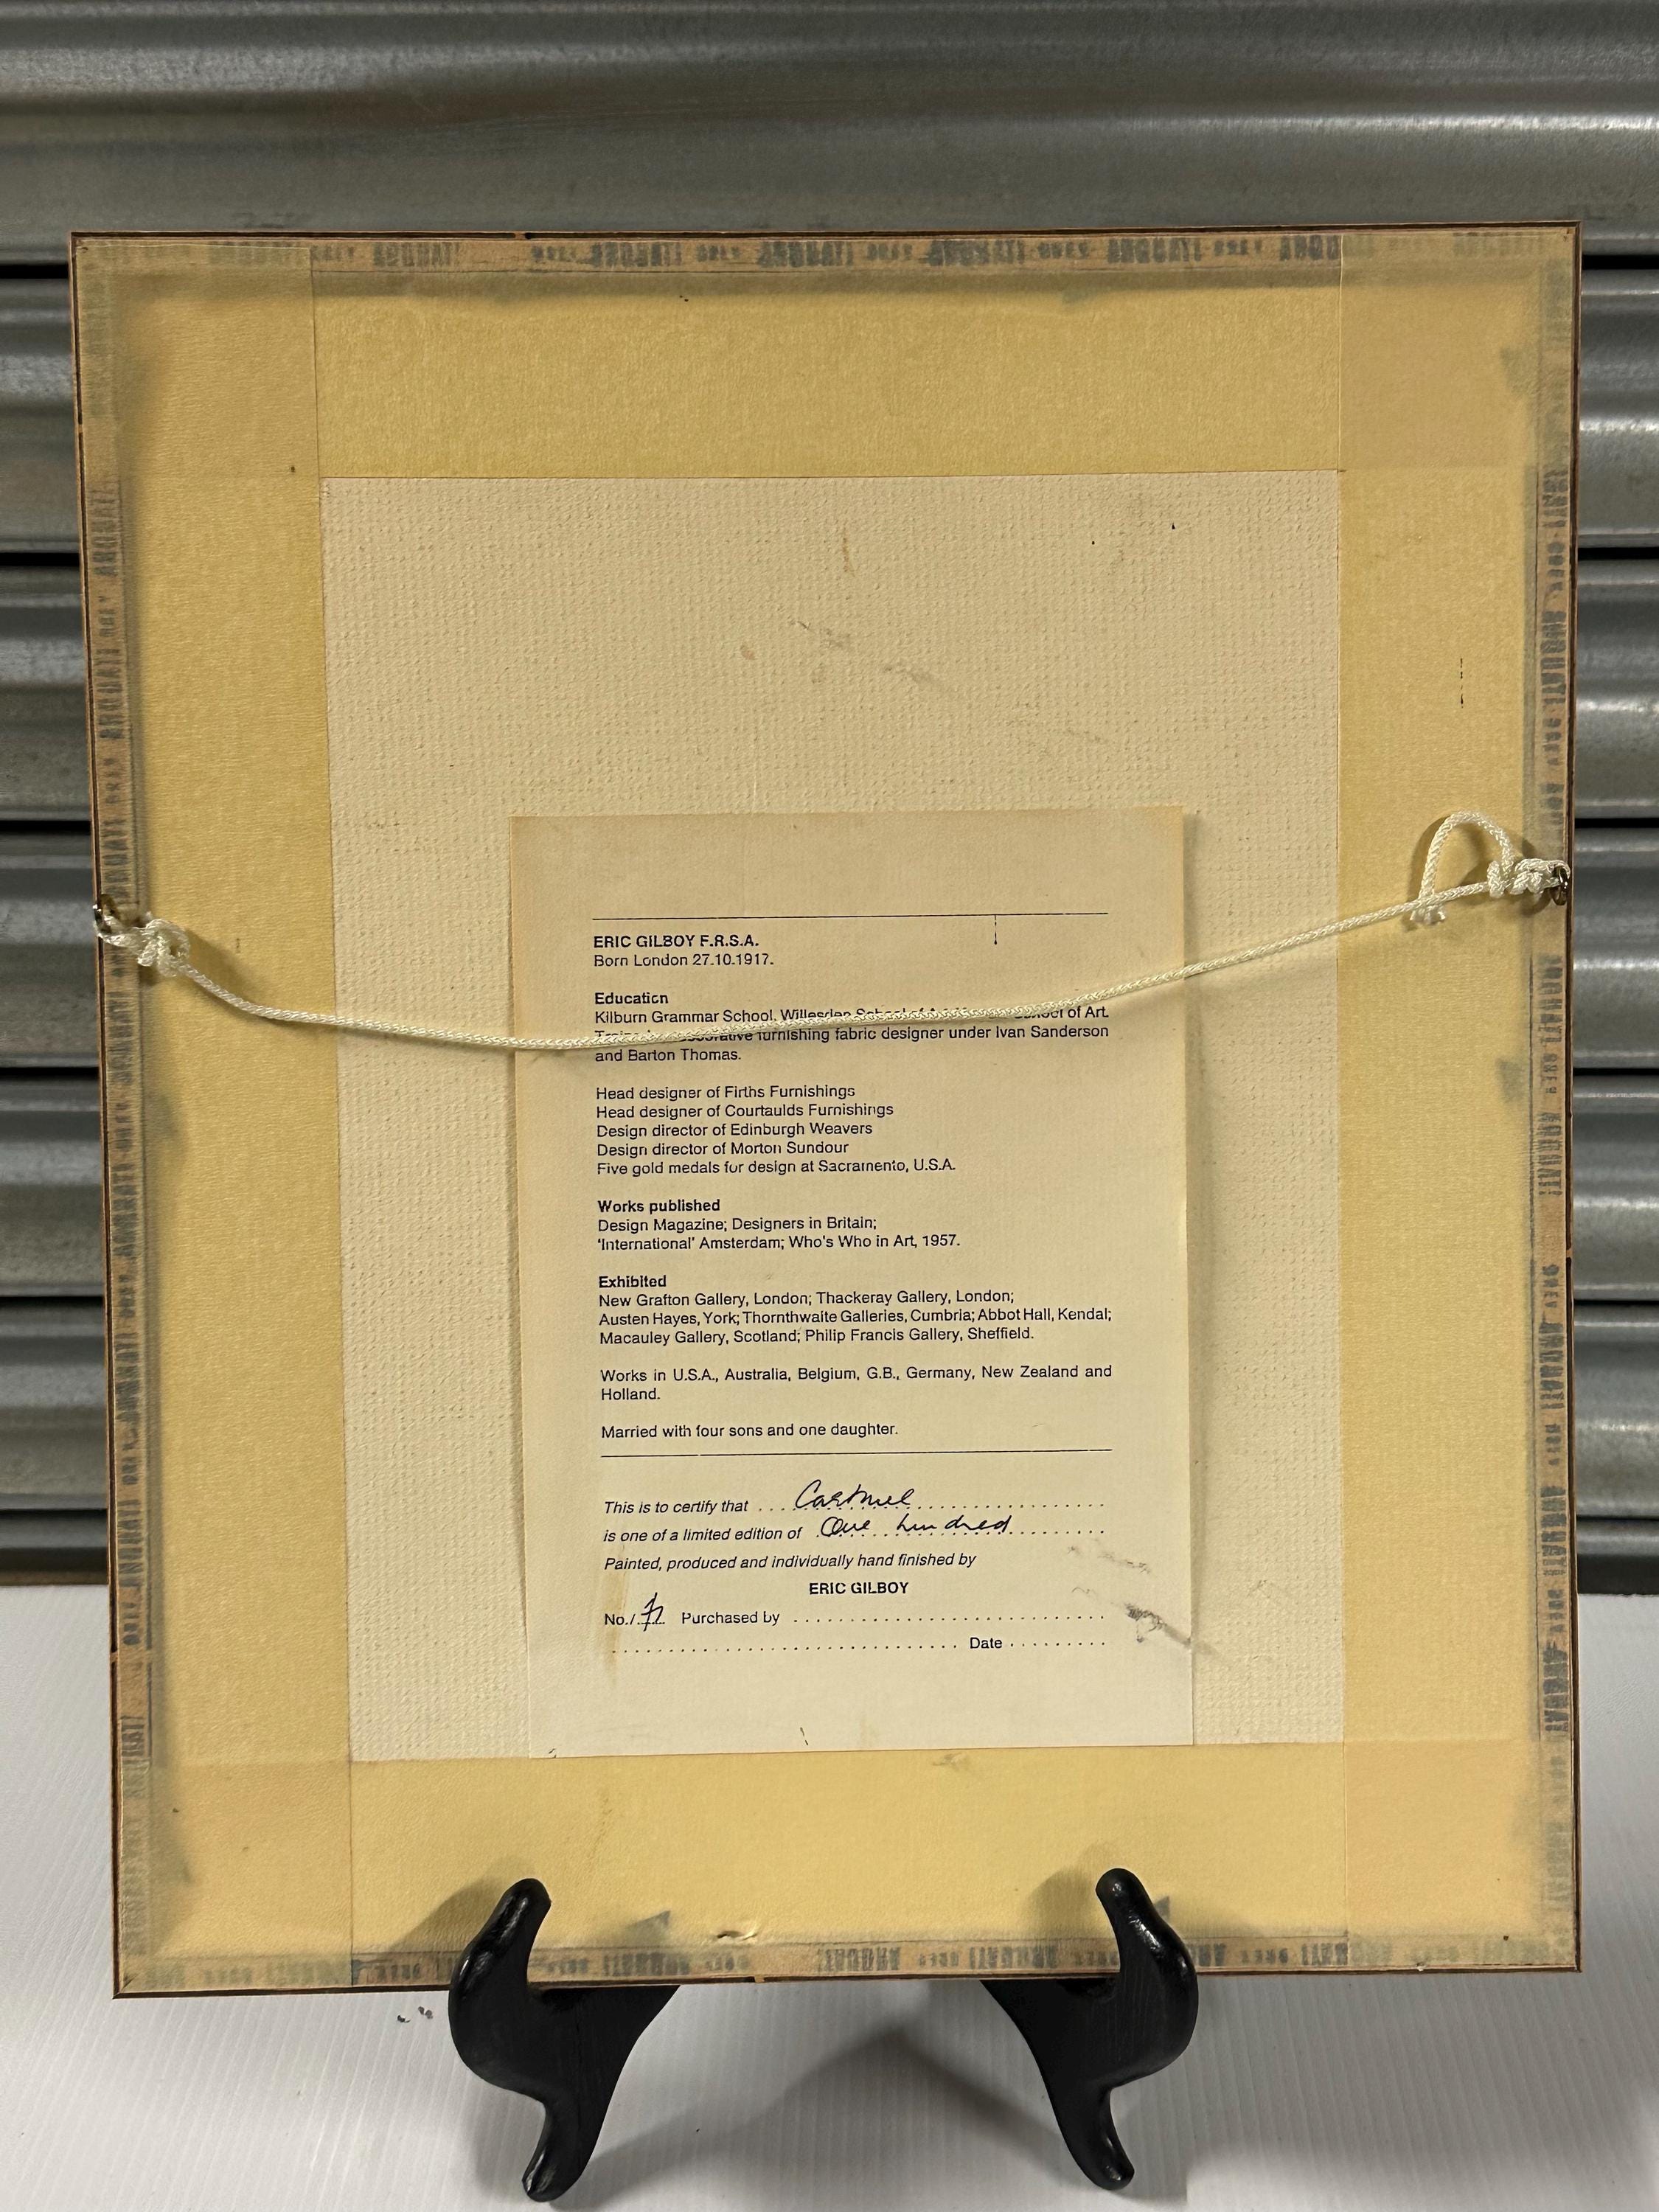 ERIC GILBOY F.R.S.A.
Born London 27.10.1917.
Education
Kilburn Grammar School, Willesden School of School of Art.
furnishing fabric designer under Ivan Sanderson
and Barton Thomas.
Head designer of Firths Furnishings
Head designer of Courtaulds Furnishings
Design director of Edinburgh Weavers
Design director of Morton Sundour
Five gold medals for design at Sacramento, U.S.A.
Works published
Design Magazine; Designers in Britain;
'International' Amsterdam; Who's Who in Art, 1957.
Exhibited
New Grafton Gallery, London; Thackeray Gallery, London;
Austen Hayes, York; Thornthwaite Galleries, Cumbria; Abbot Hall, Kendal;
Macauley Gallery, Scotland; Philip Francis Gallery, Sheffield.
Works in U.S.A., Australia, Belgium, G.B., Germany, New Zealand and
Holland.
Married with four sons and one daughter.
This is to certify that ... Cartmel ...
is one of a limited edition of One hundred ...
Painted, produced and individually hand finished by
ERIC GILBOY
No. Purchased by ...
... Date ...